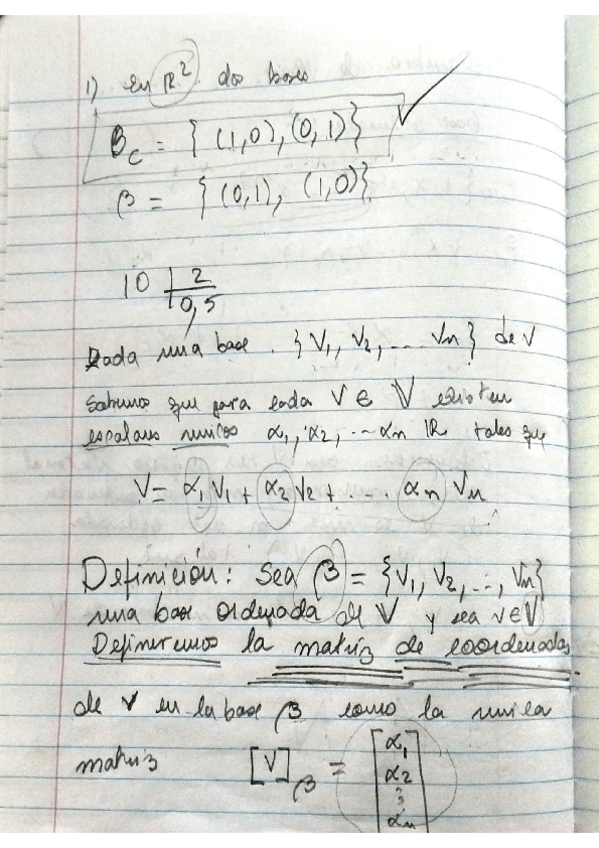 1) En ℝ² dos bases
B_C = { (1,0), (0,1)}
β = { (0,1), (1,0)}
10 | 2
0,5
Dada una base { V₁, V₂, ... Vn } de V
Sabemos que para cada V ∈ V existen
escalares unicos α₁, α₂, ... αn ℝ tales que
V = α₁ V₁ + α₂ V₂ + ... αn Vn
Definición: Sea β = {V₁, V₂, ..., Vn}
una base ordenada de V y sea v ∈ V
Definiremos la matriz de coordenadas
de V en la base β como la unica
matriz [V]_β = [α₁
α₂
⋮
αn]